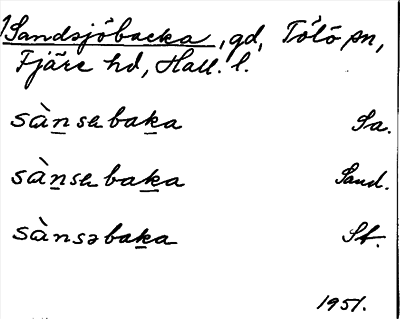 1) Sandsjöbacka, gd, Tölö sn,
Fjäre hd, Hall. l.
sànsəbaka Sa.
sànsəbaka Sand.
sànsəbaka St.
1951.